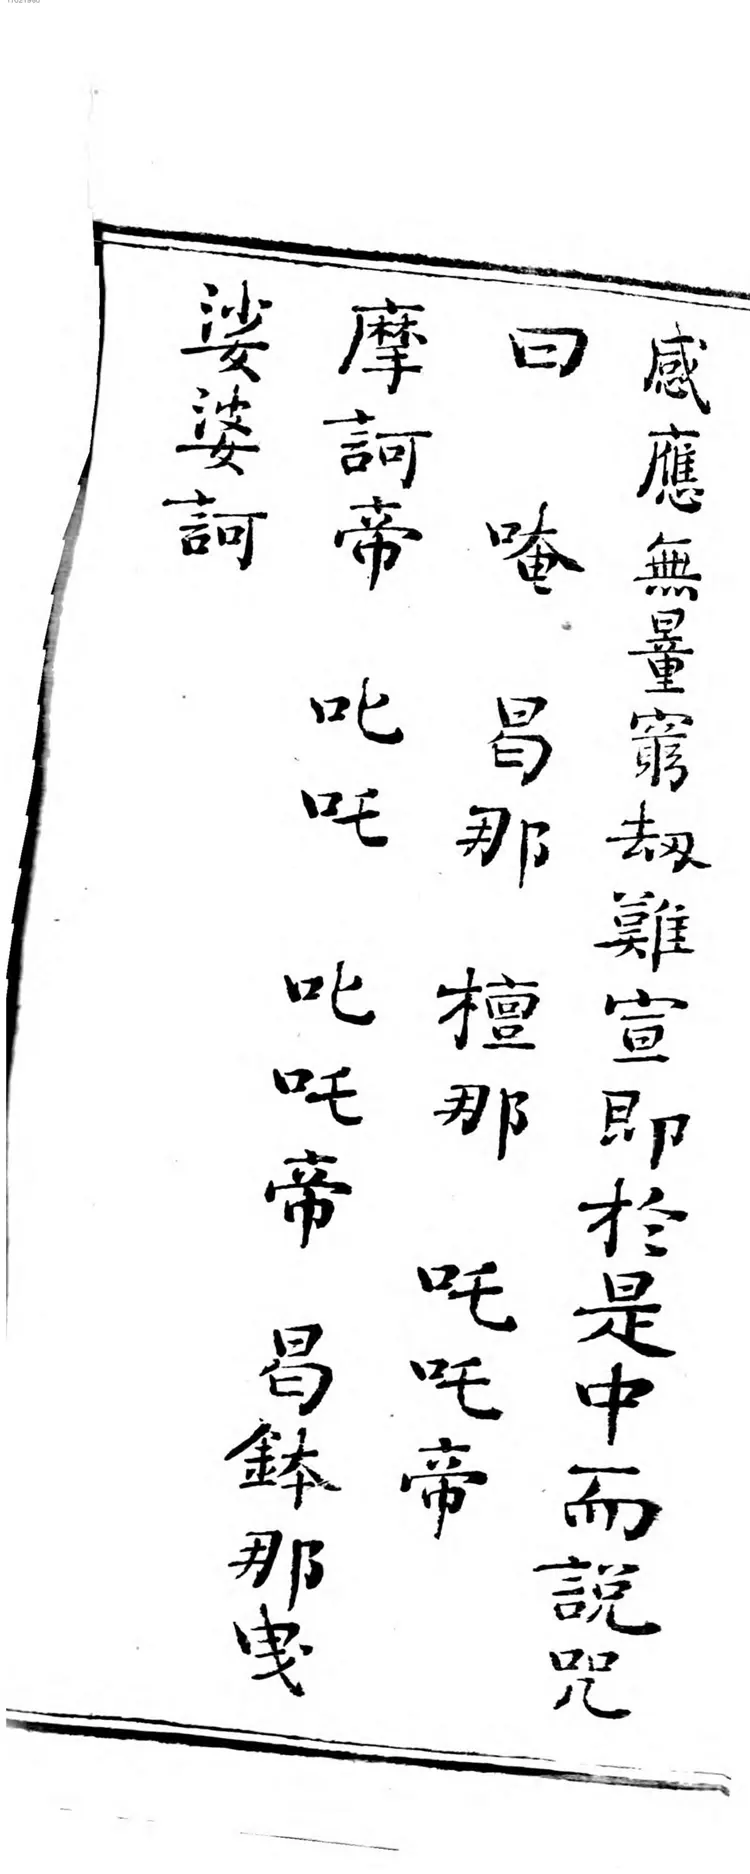 感應無量窮劫難宣即於是中而說咒
曰 唵 昌那 檀那 吒吒帝
摩訶帝 叱吒 叱吒帝 昌鉢那曳
娑婆訶